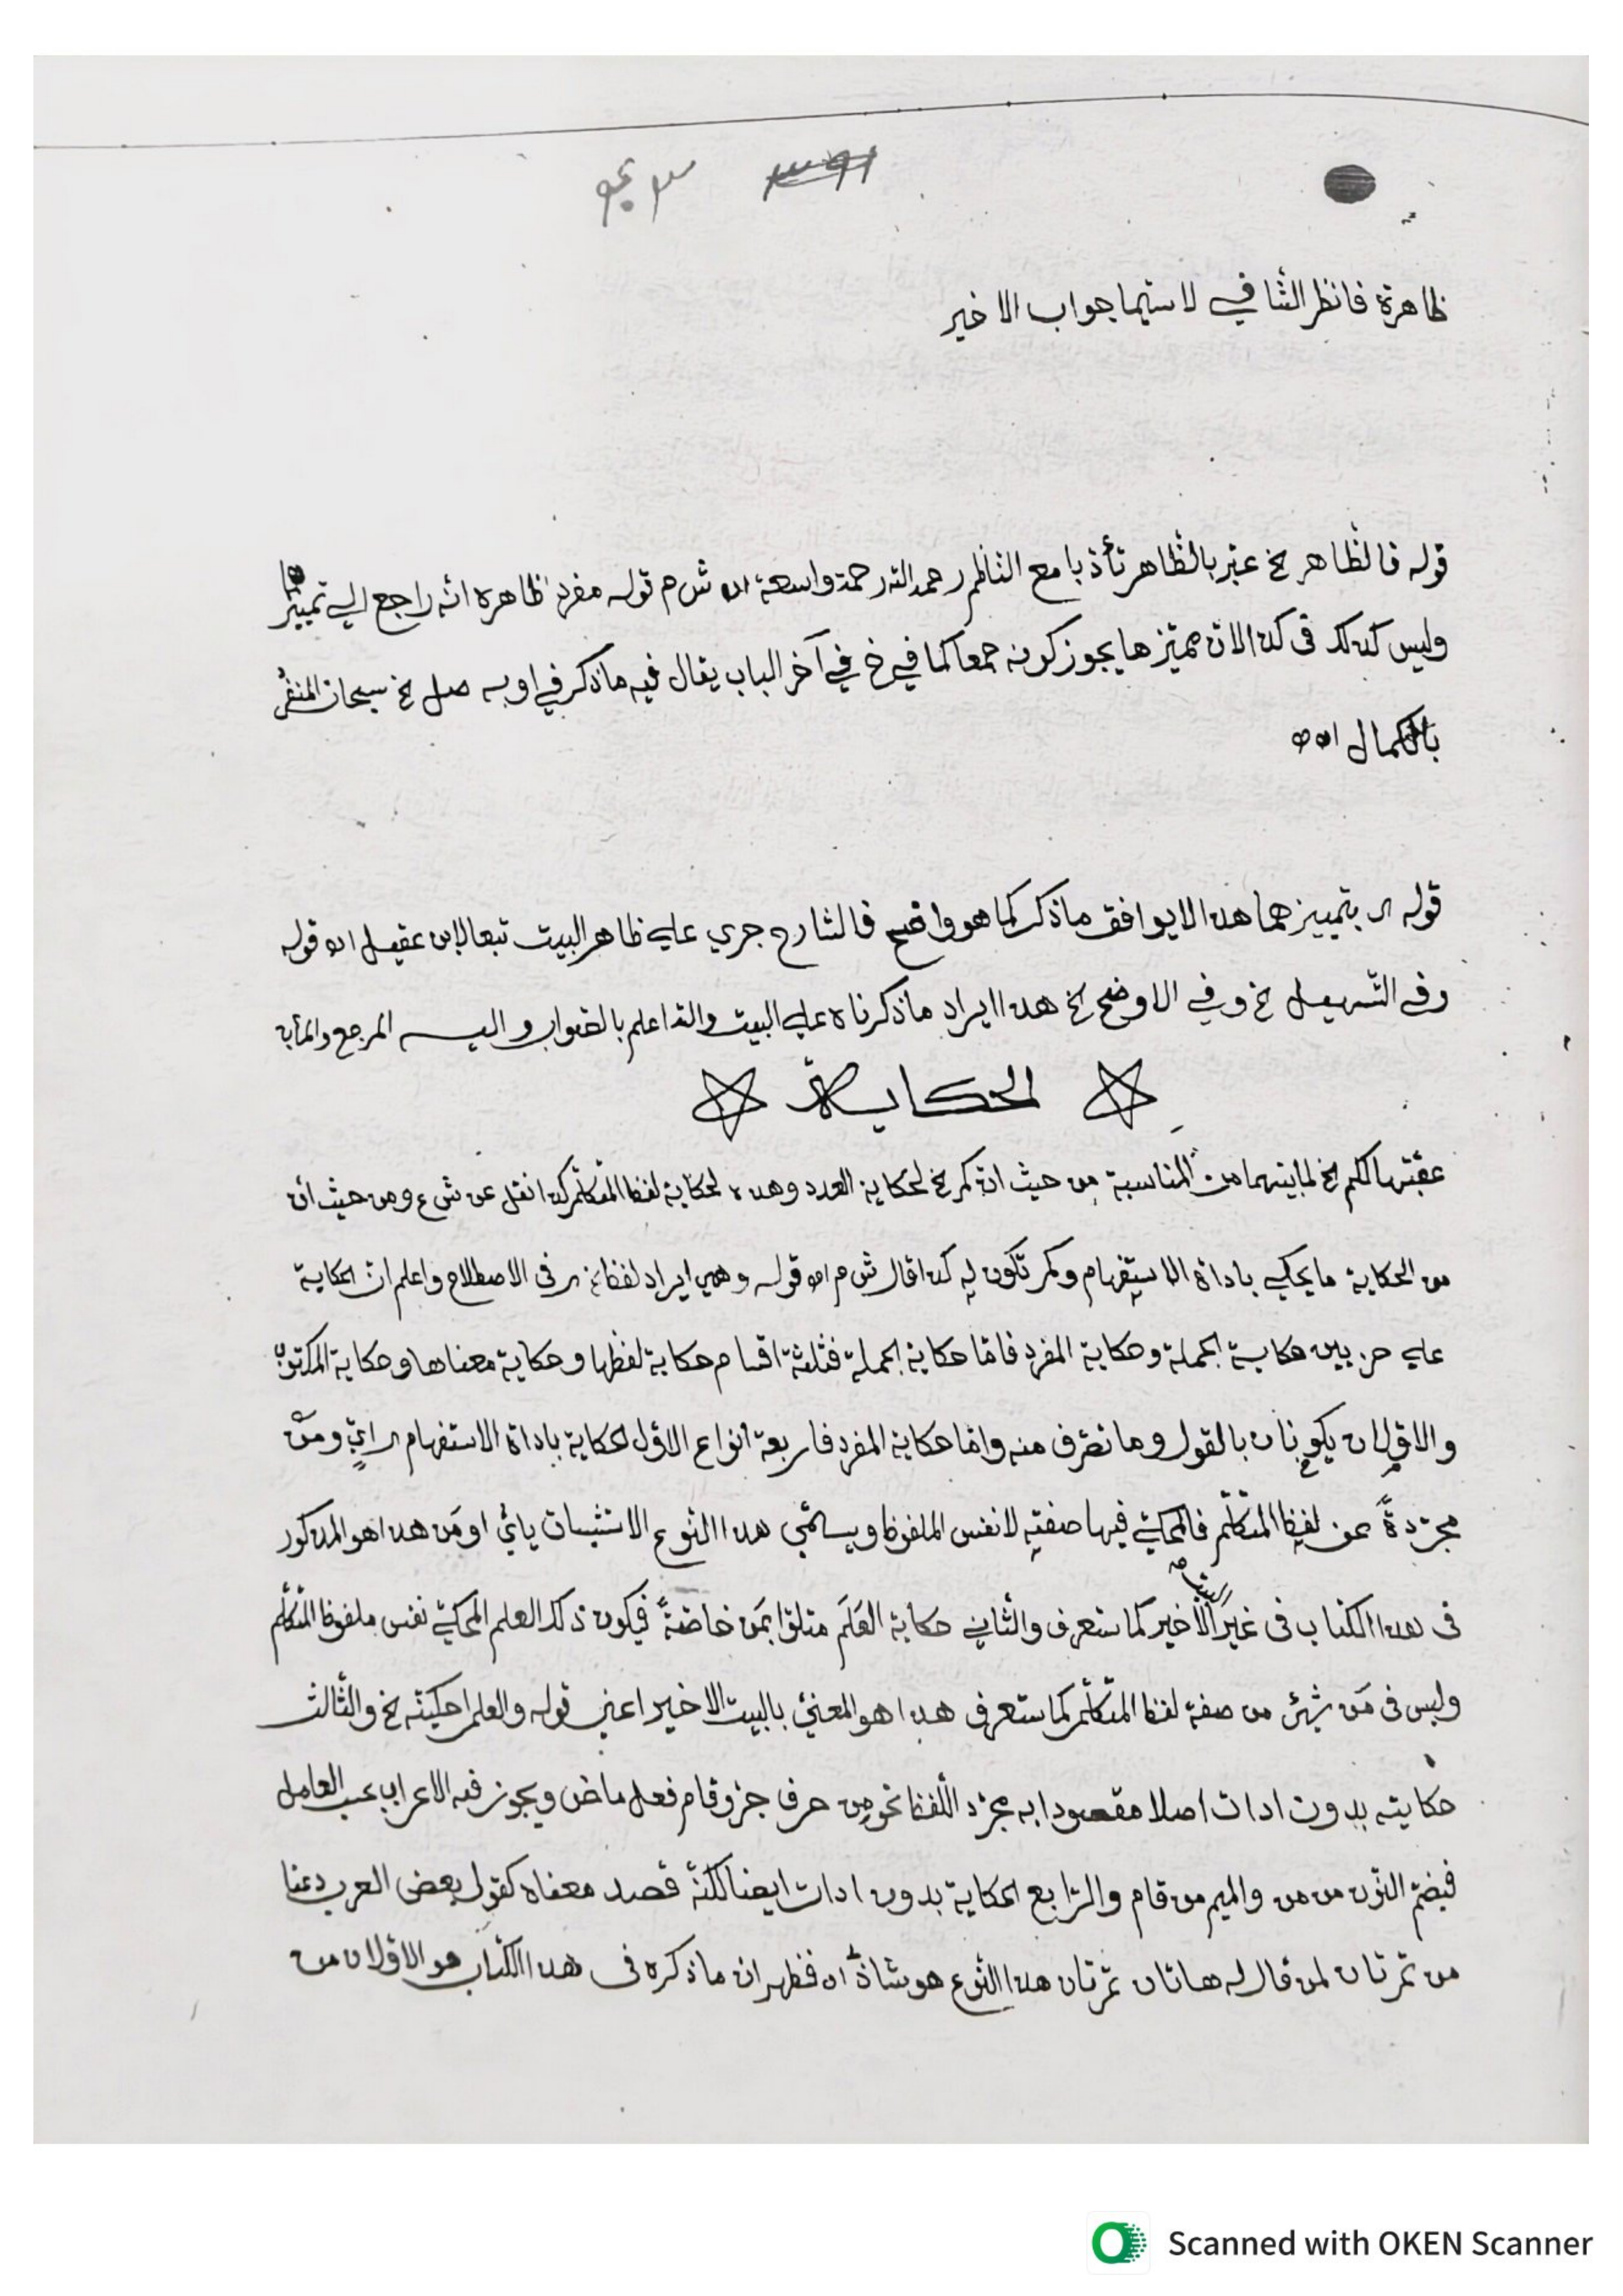 ظاهرة فانظر الشافي لا سيّما جواب الاخير
قوله فالظاهر لخ عبّر بالظّاهر تأدّبا مع النّاظم رحمه الله رحمة واسعة اه ش م قوله مفرد ظاهره انّه راجع الي تمييزها
وليس كذلك في كذا لانّ مميّزها يجوز كونه جمعا كما في خ في آخر الباب يقال فيه ما ذكر في او به صل لخ سبحان المنفرد
بالكمال اه
قوله بتمييزهما هذا لا يوافق ما ذكر كما هو واضح فالشارح جري علي ظاهر البيت تبعا لابن عقيل اه قوله
وفي التّسهيل لخ وفي الاوضح لخ هذا ايراد ما ذكرناه علي البيت والله اعلم بالصّواب واليه المرجع والمآب
الحكاية
عقّبها لكم لخ لما بينهما من المناسبة من حيث انّ كم لخ لحكاية العدد وهذه لحكاية لفظ المتكلّم كذا نقل عن ش ع ومن حيث انّ
من الحكاية ما يحكي باداة الاستفهام وكم تكون له كذا قال ش م اه قوله وهي ايراد لفظ لخ في الاصطلاح واعلم انّ الحكاية
علي ضربين حكاية الجملة وحكاية المفرد فامّا حكاية الجملة فثلثة اقسام حكاية لفظها وحكاية معناها وحكاية المكتوب
والاوّلان يكونان بالقول وما تصرّف منه وامّا حكاية المفرد فاربعة انواع الاوّل الحكاية باداة الاستفهام ايٍّ ومَنْ
مجرّدةً عن لفظ المتكلّم فالمحكيّ فيها صفته لا نفس الملفوظ ويسمّي هذا النّوع الاستثبات بايّ او مَن هذا هو المذكور
في هذا الكتاب في غير البيت الأخير كما ستعرف والثّاني حكاية العَلَم متلوّا بمَن خاصّةً فيكون ذلك العلم المحكيّ نفس ملفوظ المتكلّم
وليس في مَن شيئ من صفة لفظ المتكلّم كما ستعرف هذا هو المعنيّ بالبيت الاخير اعني قوله والعلم احكينّه لخ والثّالث
حكايته بدون ادات اصلا مقصودا به مجرّد اللّفظ نحو من حرف جرّ وقام فعل ماض ويجوز فيه الاعراب بحسب العامل
فيضمّ النّون من من والميم من قام والرّابع الحكاية بدون ادات ايضا لكنّه قصد معناه كقول بعض العرب دعنا
من تمرتان لمن قال له هاتان تمرتان هذا النّوع هو شاذّ اه فظهر ان ما ذكره في هذا الكتاب هو الاوّلان من
Scanned with OKEN Scanner